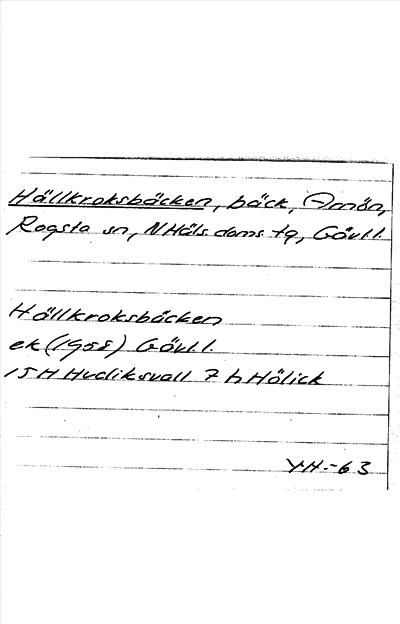 Hällkroksbäcken, bäck, Armön,
Rogsta sn, N Häls. doms. tg, Gävl.l.
Hällkroksbäcken
ek (1958) Gävl.l.
15H Hudiksvall 7 h Hölick
YH.-63